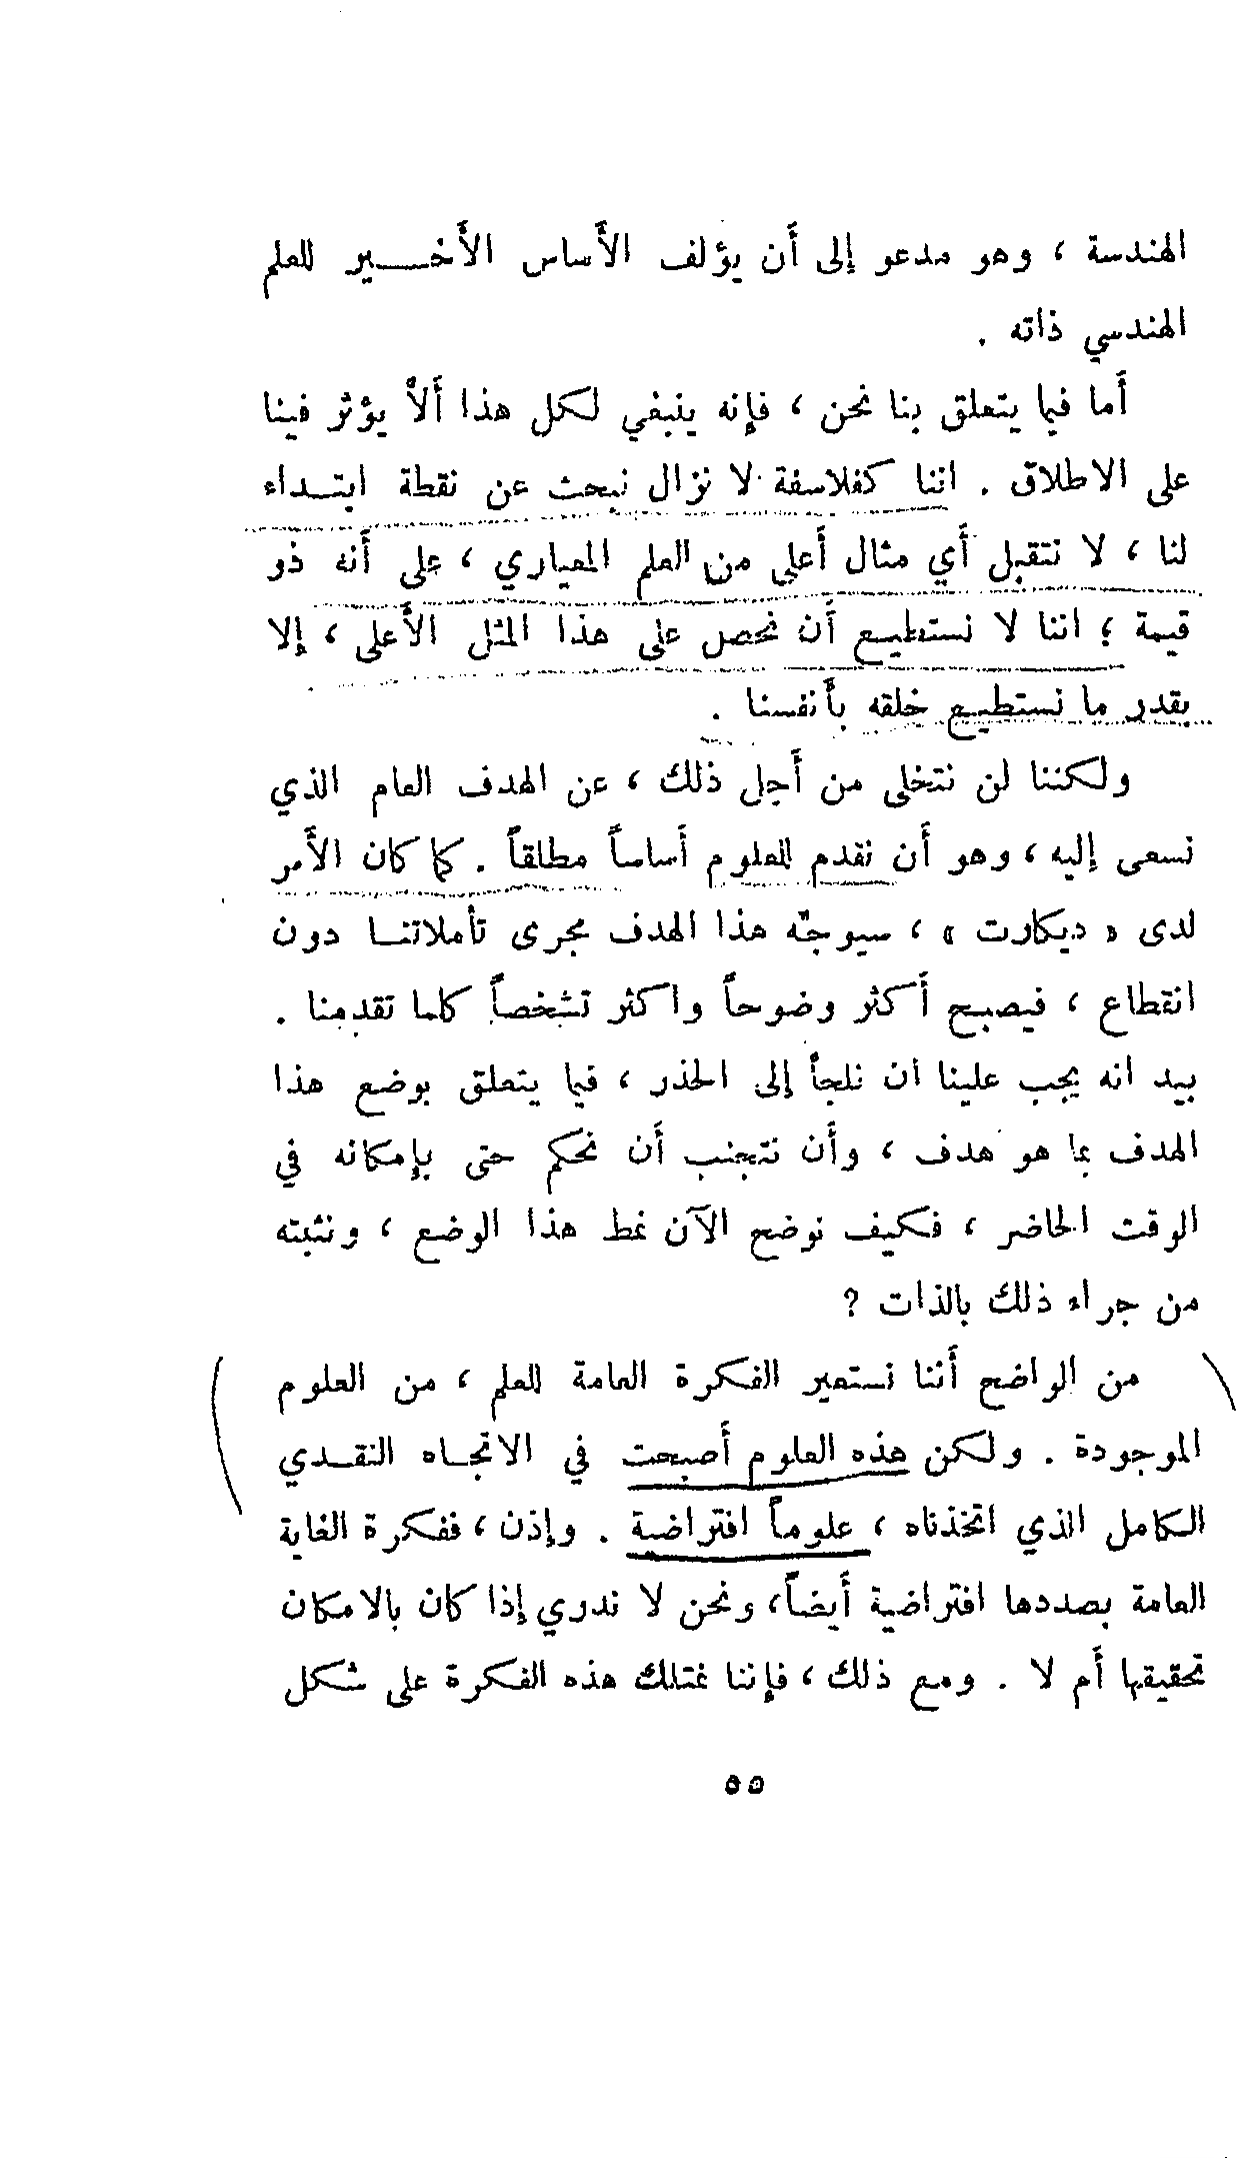 الهندسة ، وهو مدعو إلى أَن يؤلف الأَساس الأَخـــير للعلم
الهندسي ذاته .
أَما فيما يتعلق بنا نحن ، فإِنه ينبغي لكل هذا أَلاْ يؤثر فينا
على الاطلاق . اننا كفلاسفة لا نزال نبحث عن نقطة ابتـداء
لنا ، لا نتقبل أَي مثال أَعلى من العلم المعياري ، على أَنه ذو
قيمة ؛ اننا لا نستطيـع أَن نحصل على هذا المثل الأَعلى ، إلا
بقدر ما نستطيـع خلقه بأَنفسنا .
ولكننا لن نتخلى من أَجل ذلك ، عن الهدف العام الذي
نسعى إليه ، وهو أَن نقدم للعلوم أَساساً مطلقاً . كما كان الأَمر
لدى « ديكارت » ، سيوجّه هذا الهدف مجرى تأملاتنـا دون
انقطاع ، فيصبح أَكثر وضوحاً واكثر تشخصاً كلما تقدمنا .
بيد انه يجب علينا ان نلجأ إلى الحذر ، فيما يتعلق بوضع هذا
الهدف بما هو هدف ، وأَن نتجنب أَن نحكم حتى بإِمكانه في
الوقت الحاضر ، فكيف نوضح الآن نمط هذا الوضع ، ونثبته
من جراء ذلك بالذات ؟
من الواضح أَننا نستعير الفكرة العامة للعلم ، من العلوم
الموجودة . ولكن هذه العلوم أَصبحت في الاتجـاه النقـدي
الكامل الذي اتخذناه ، علوماً افتراضية . وإذن ، ففكرة الغاية
العامة بصددها افتراضية أَيضاً، ونحن لا ندري إذا كان بالامكان
تحقيقها أَم لا . ومع ذلك ، فإِننا نمتلك هذه الفكرة على شكل
٥٥